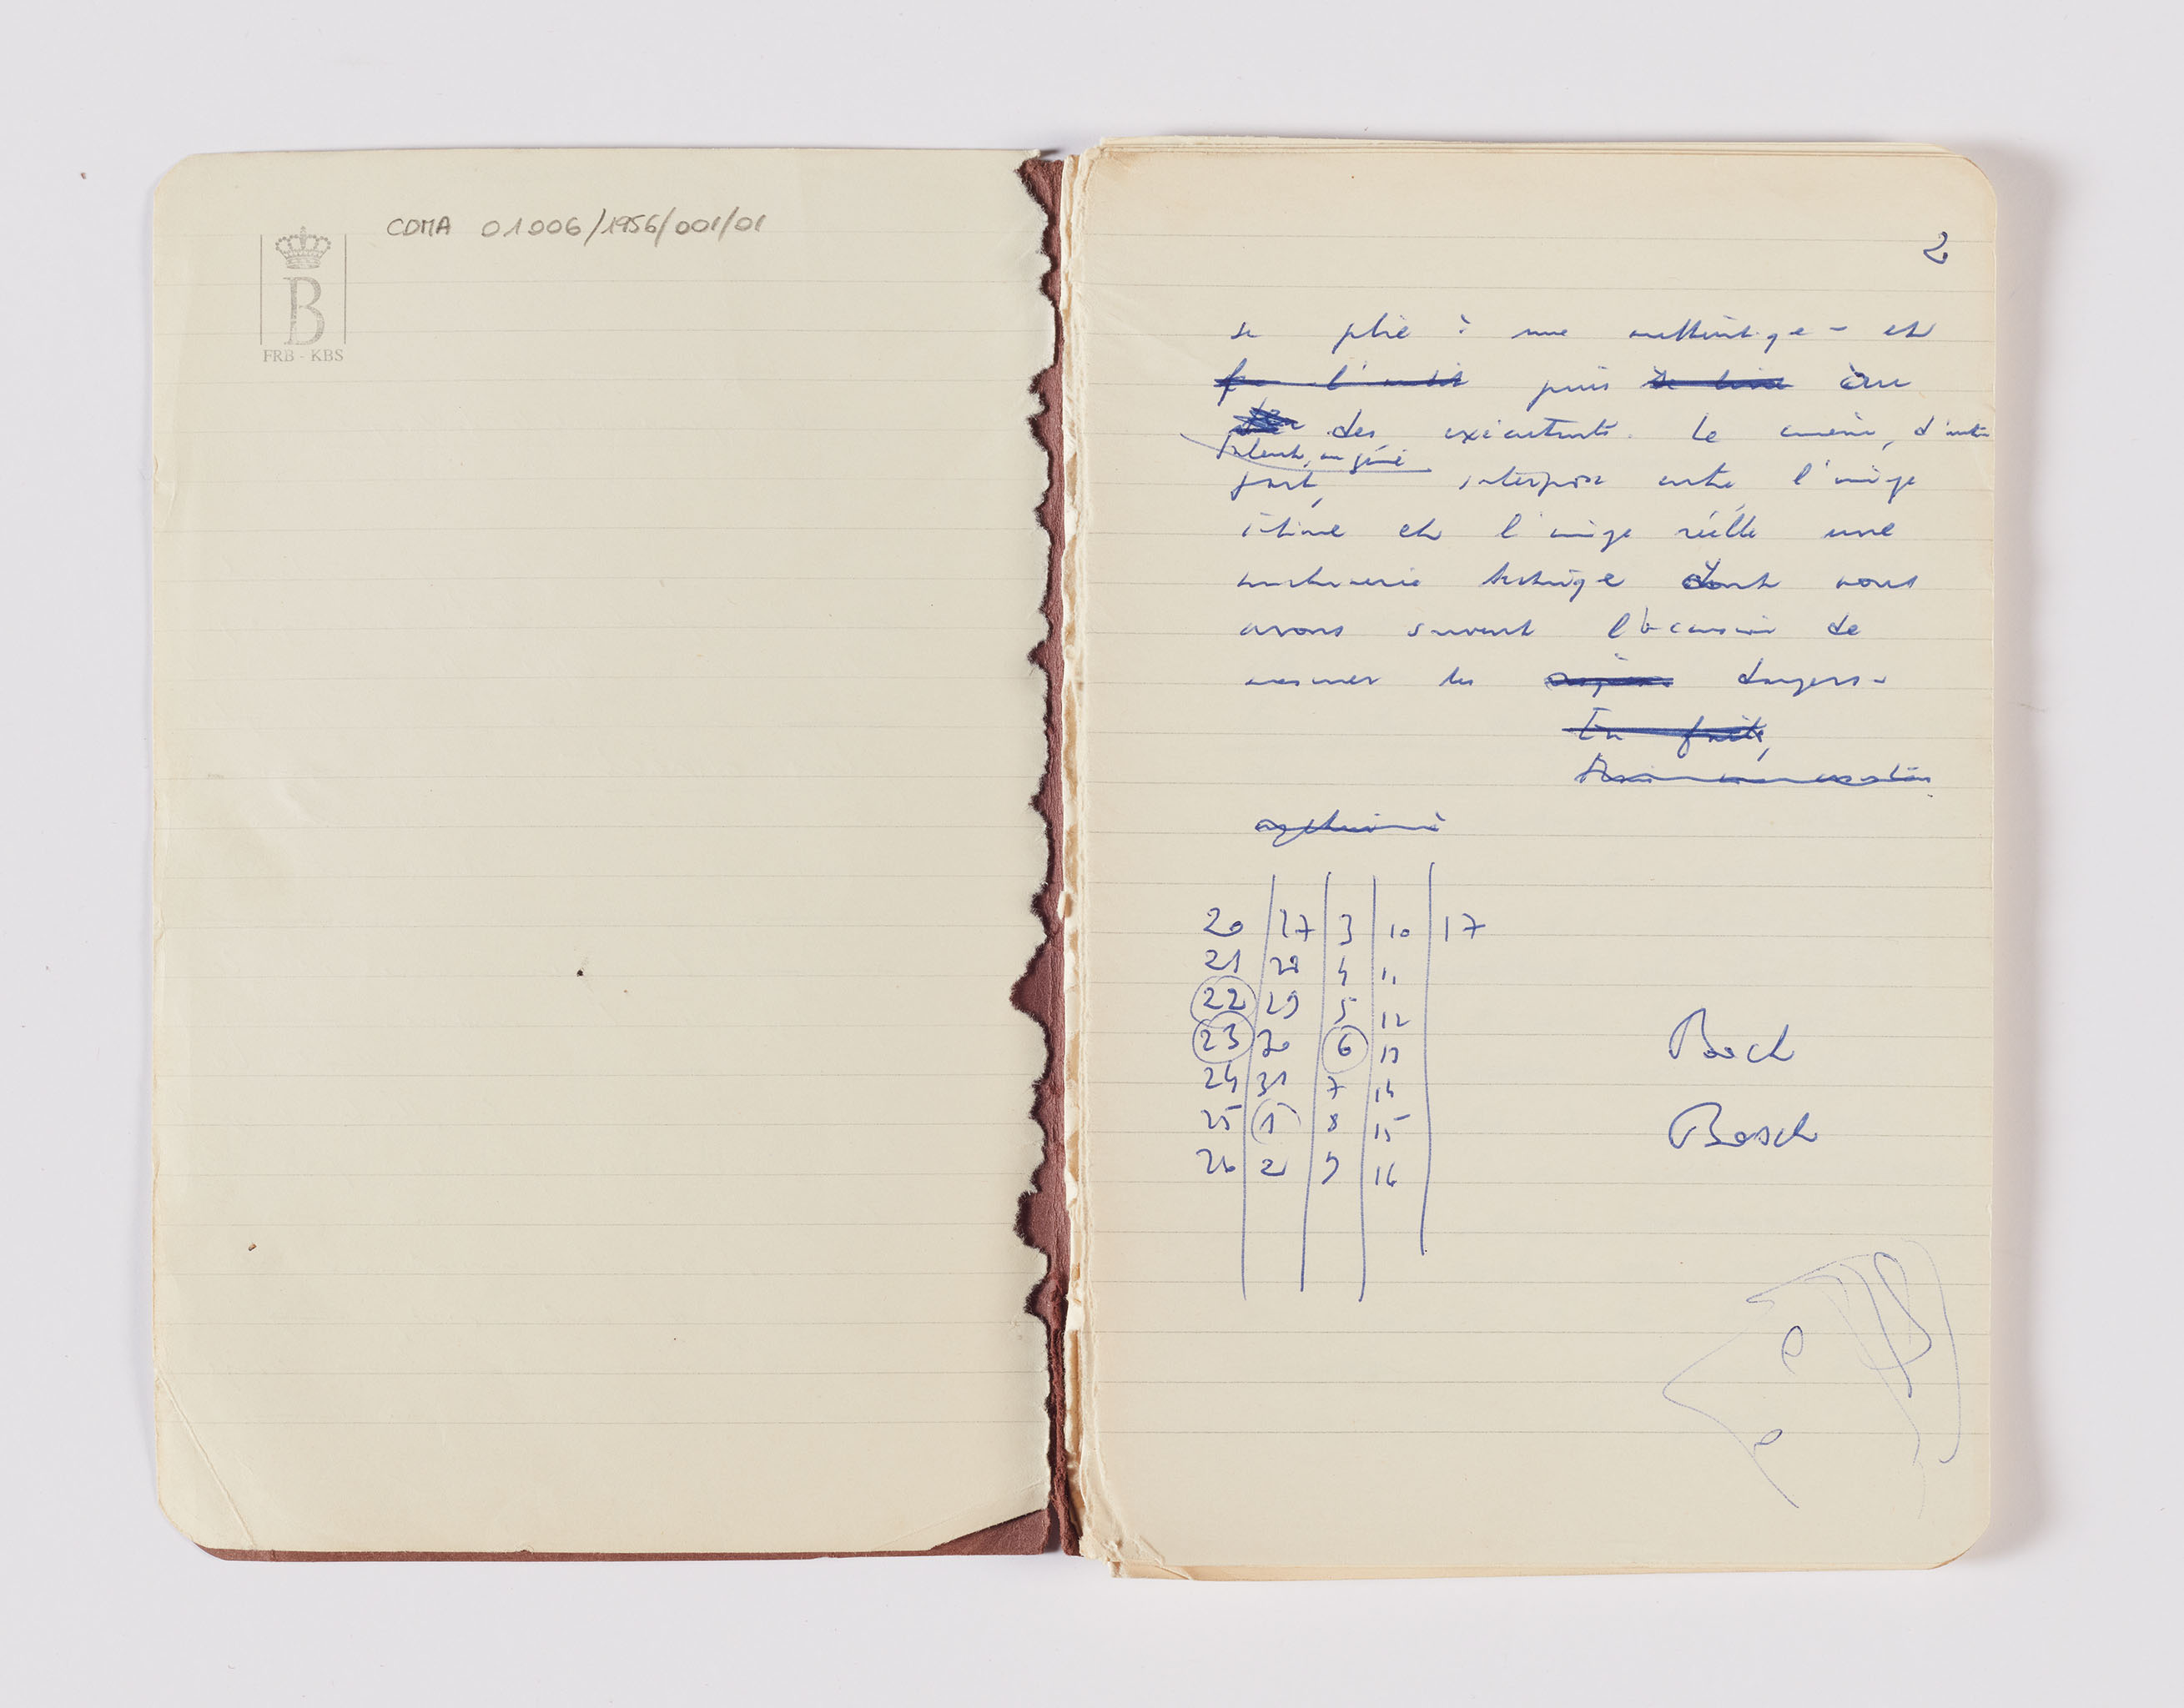 CDMA 01006/1956/001/01
B
FRB - KBS
2
se plie à une et
puis
des exécutants. Le cinéma, d'autre
talent, ou génie
part, interpose entre l'image
intime et l'image réelle une
machinerie dont nous
avons souvent l'occasion de
mesurer les dangers
En fait,
20 27 3 10 17
21 28 4 11
22 29 5 12
23 30 6 13
24 31 7 14
25 1 8 15
26 2 9 16
Bosch
Bosch